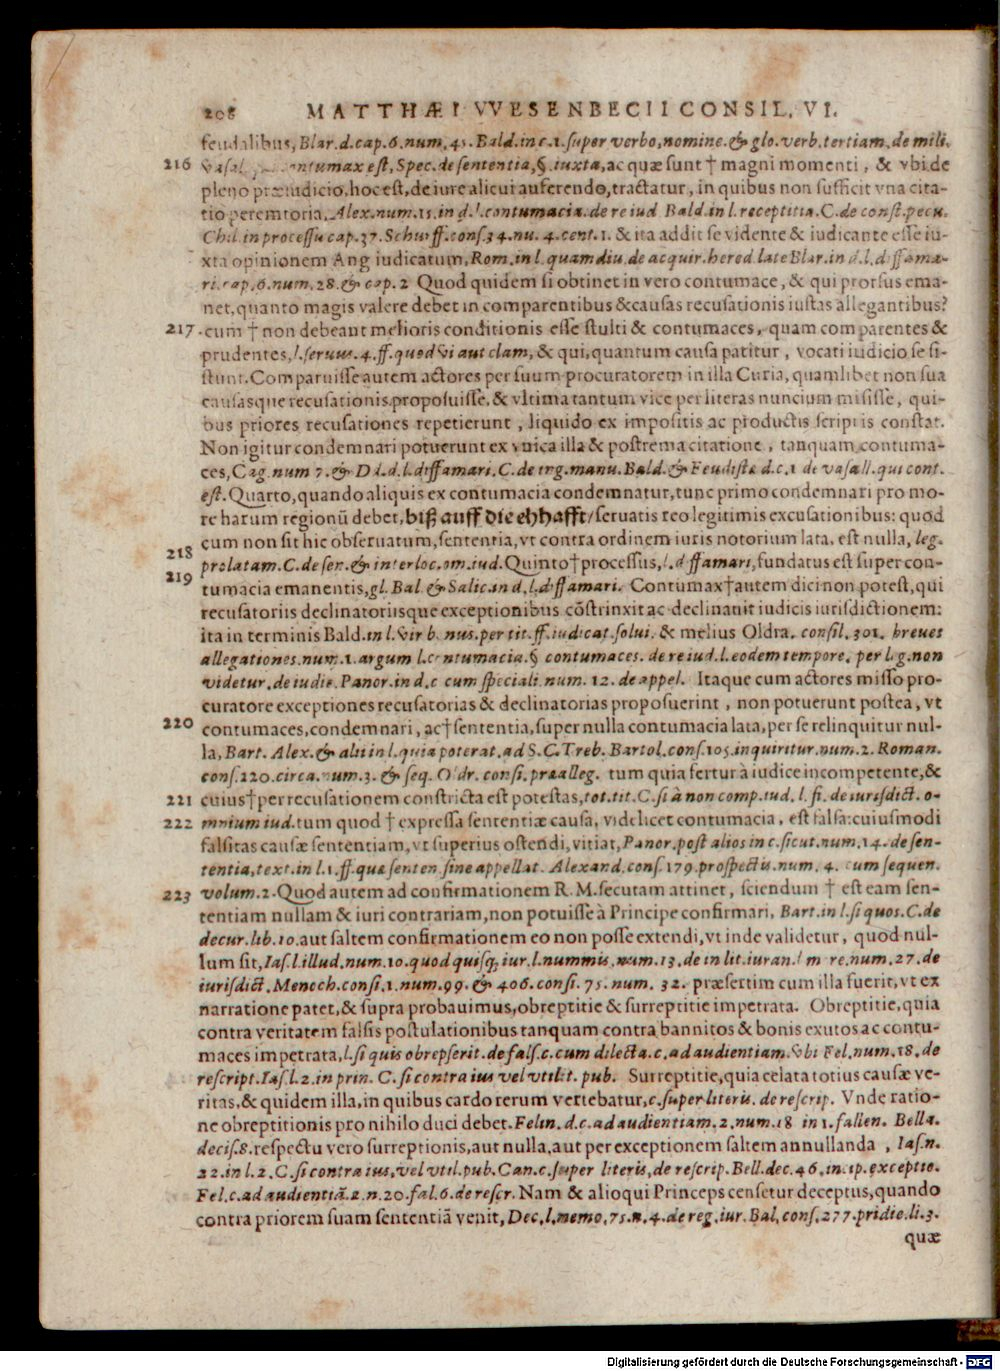 208 MATTHÆI VVESENBECII CONSIL. VI.
feudalibus, Blar. d. cap. 6. num. 45. Bald. in c. 1. super verbo, nomine. & glo. verb. tertiam, de mili.
216 contumax est, Spec. de sententia, §. iuxta, ac quæ sunt † magni momenti, & vbi de
pleno præiudicio, hoc est, de iure alicui auferendo, tractatur, in quibus non sufficit vna cita-
tio peremtoria, Alex. num. 15. in d. l. contumacia. de re iud Bald. in l. receptitia. C. de const. pecu.
Chil. in processu cap. 37. Schurff. cons. 34. nu. 4. cent. 1. & ita addit se vidente & iudicante esse iu-
xta opinionem Ang iudicatum, Rom. in l. quamdiu. de acquir. hered late Blar. in d. l. diffama-
ri. cap. 6. num. 28. & cap. 2 Quod quidem si obtinet in vero contumace, & qui prorsus ema-
net, quanto magis valere debet in comparentibus & causas recusationis iustas allegantibus?
217. cum † non debeant melioris conditionis esse stulti & contumaces, quam comparentes &
prudentes, l. seruus. 4. ff. quod vi aut clam, & qui, quantum causa patitur, vocati iudicio se si-
stunt. Comparuisse autem actores per suum procuratorem in illa Curia, quamlibet non sua
causasque recusationis proposuisse, & vltima tantum vice per literas nuncium misisse, qui-
bus priores recusationes repetierunt, liquido ex impositis ac productis scriptis constat.
Non igitur condemnari potuerunt ex vnica illa & postrema citatione, tanquam contuma-
ces, Cag. num 7. & Dd. d. l. diffamari. C. de ing. manu. Bald. & Feudistæ d. c. 1 de vasall. qui cont.
est. Quarto, quando aliquis ex contumacia condemnatur, tunc primo condemnari pro mo-
re harum regionũ debet, biß auff die ehhafft/ seruatis reo legitimis excusationibus: quod
cum non sit hic obseruatum, sententia, vt contra ordinem iuris notorium lata, est nulla, leg.
218 prolatam. C. de sen. & interloc. om. iud. Quinto † processus, l. diffamari, fundatus est super con-
219 tumacia emanentis, gl. Bal. & Salic. in d. l. diffamari. Contumax † autem dici non potest, qui
recusatoriis declinatoriisque exceptionibus cõstrinxit ac declinauit iudicis iurisdictionem:
ita in terminis Bald. in l. vir bonus. per tit. ff. iudicat. solui. & melius Oldra. consil. 301. breues
allegationes. num. 1. argum l. contumacia. § contumaces. de re iud. l. eodem tempore. per leg. non
videtur. de iudic. Panor. in d. c cum speciali. num. 12. de appel. Itaque cum actores misso pro-
curatore exceptiones recusatorias & declinatorias proposuerint, non potuerunt postea, vt
220 contumaces, condemnari, ac † sententia, super nulla contumacia lata, per se relinquitur nul-
la, Bart. Alex. & alii in l. quia poterat. ad S. C. Treb. Bartol. cons. 105. inquiritur. num. 2. Roman.
cons. 220. circa. num. 3. & seq. Oldr. consi. præalleg. tum quia fertur à iudice incompetente, &
221 cuius † per recusationem constricta est potestas, tot. tit. C. si à non comp. iud. l. fi. de iurisdict. o-
222 mnium iud. tum quod † expressa sententiæ causa, videlicet contumacia, est falsa: cuiusmodi
falsitas causæ sententiam, vt superius ostendi, vitiat, Panor. post alios in c. sicut. num. 14. de sen-
tentia, text. in l. 1. ff. que senten sine appellat. Alexand. cons. 179. prospectis. num. 4. cum sequen.
223 volum. 2. Quod autem ad confirmationem R. M. secutam attinet, sciendum † est eam sen-
tentiam nullam & iuri contrariam, non potuisse à Principe confirmari, Bart. in l. si quos. C. de
decur. lib. 10. aut saltem confirmationem eo non posse extendi, vt inde validetur, quod nul-
lum sit, Ias. l. illud. num. 10. quod quisq; iur. l. nummis. num. 13. de in lit. iuran. re. num. 27. de
iurisdict. Menoch. consi. 1. num. 99. & 406. consi. 75. num. 32. præsertim cum illa fuerit, vt ex
narratione patet, & supra probauimus, obreptitie & surreptitie impetrata. Obreptitie, quia
contra veritatem falsis postulationibus tanquam contra bannitos & bonis exutos ac contu-
maces impetrata, l. si quis obrepserit. de fals. c. cum dilecta. c. ad audientiam. vbi Fel. num. 18. de
rescript. Ias. l. 2. in prin. C. si contra ius vel vtilit. pub. Surreptitie, quia celata totius causæ ve-
ritas, & quidem illa, in quibus cardo rerum vertebatur, c. super literis. de rescrip. Vnde ratio-
ne obreptitionis pro nihilo duci debet. Felin. d. c. ad audientiam. 2. num. 18 in 1. fallen. Bella.
decis. 8. respectu vero surreptionis, aut nulla, aut per exceptionem saltem annullanda, Ias. n.
22. in l. 2. C. si contra ius, vel vtil. pub. Can. c. super literis, de rescrip. Bell. dec. 46. in. ip. exceptio.
Fel. c. ad audientiã. 2. n. 20. fal. 6. de rescr. Nam & alioqui Princeps censetur deceptus, quando
contra priorem suam sententiã venit, Dec. l. nemo. 75. n. 4. de reg. iur. Bal. cons. 277. pridie. li. 3.
quæ
Digitalisierung gefördert durch die Deutsche Forschungsgemeinschaft - DFG